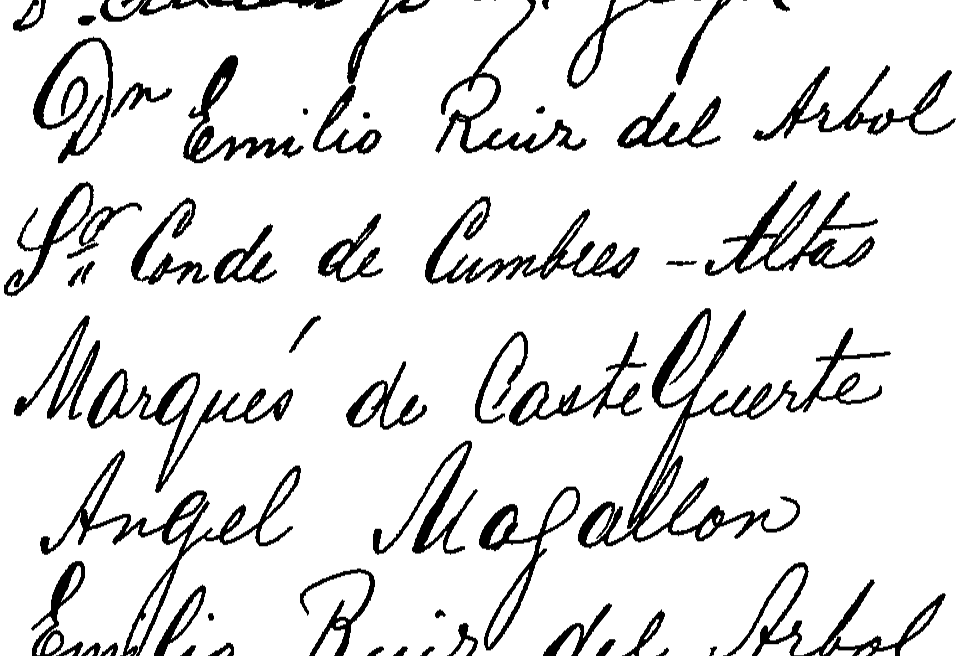 Dn Emilio Ruiz del Arbol
Sor Conde de Cumbres - Altas
Marqués de Castelfuerte
Angel Magallon
Emilio Ruiz del Arbol